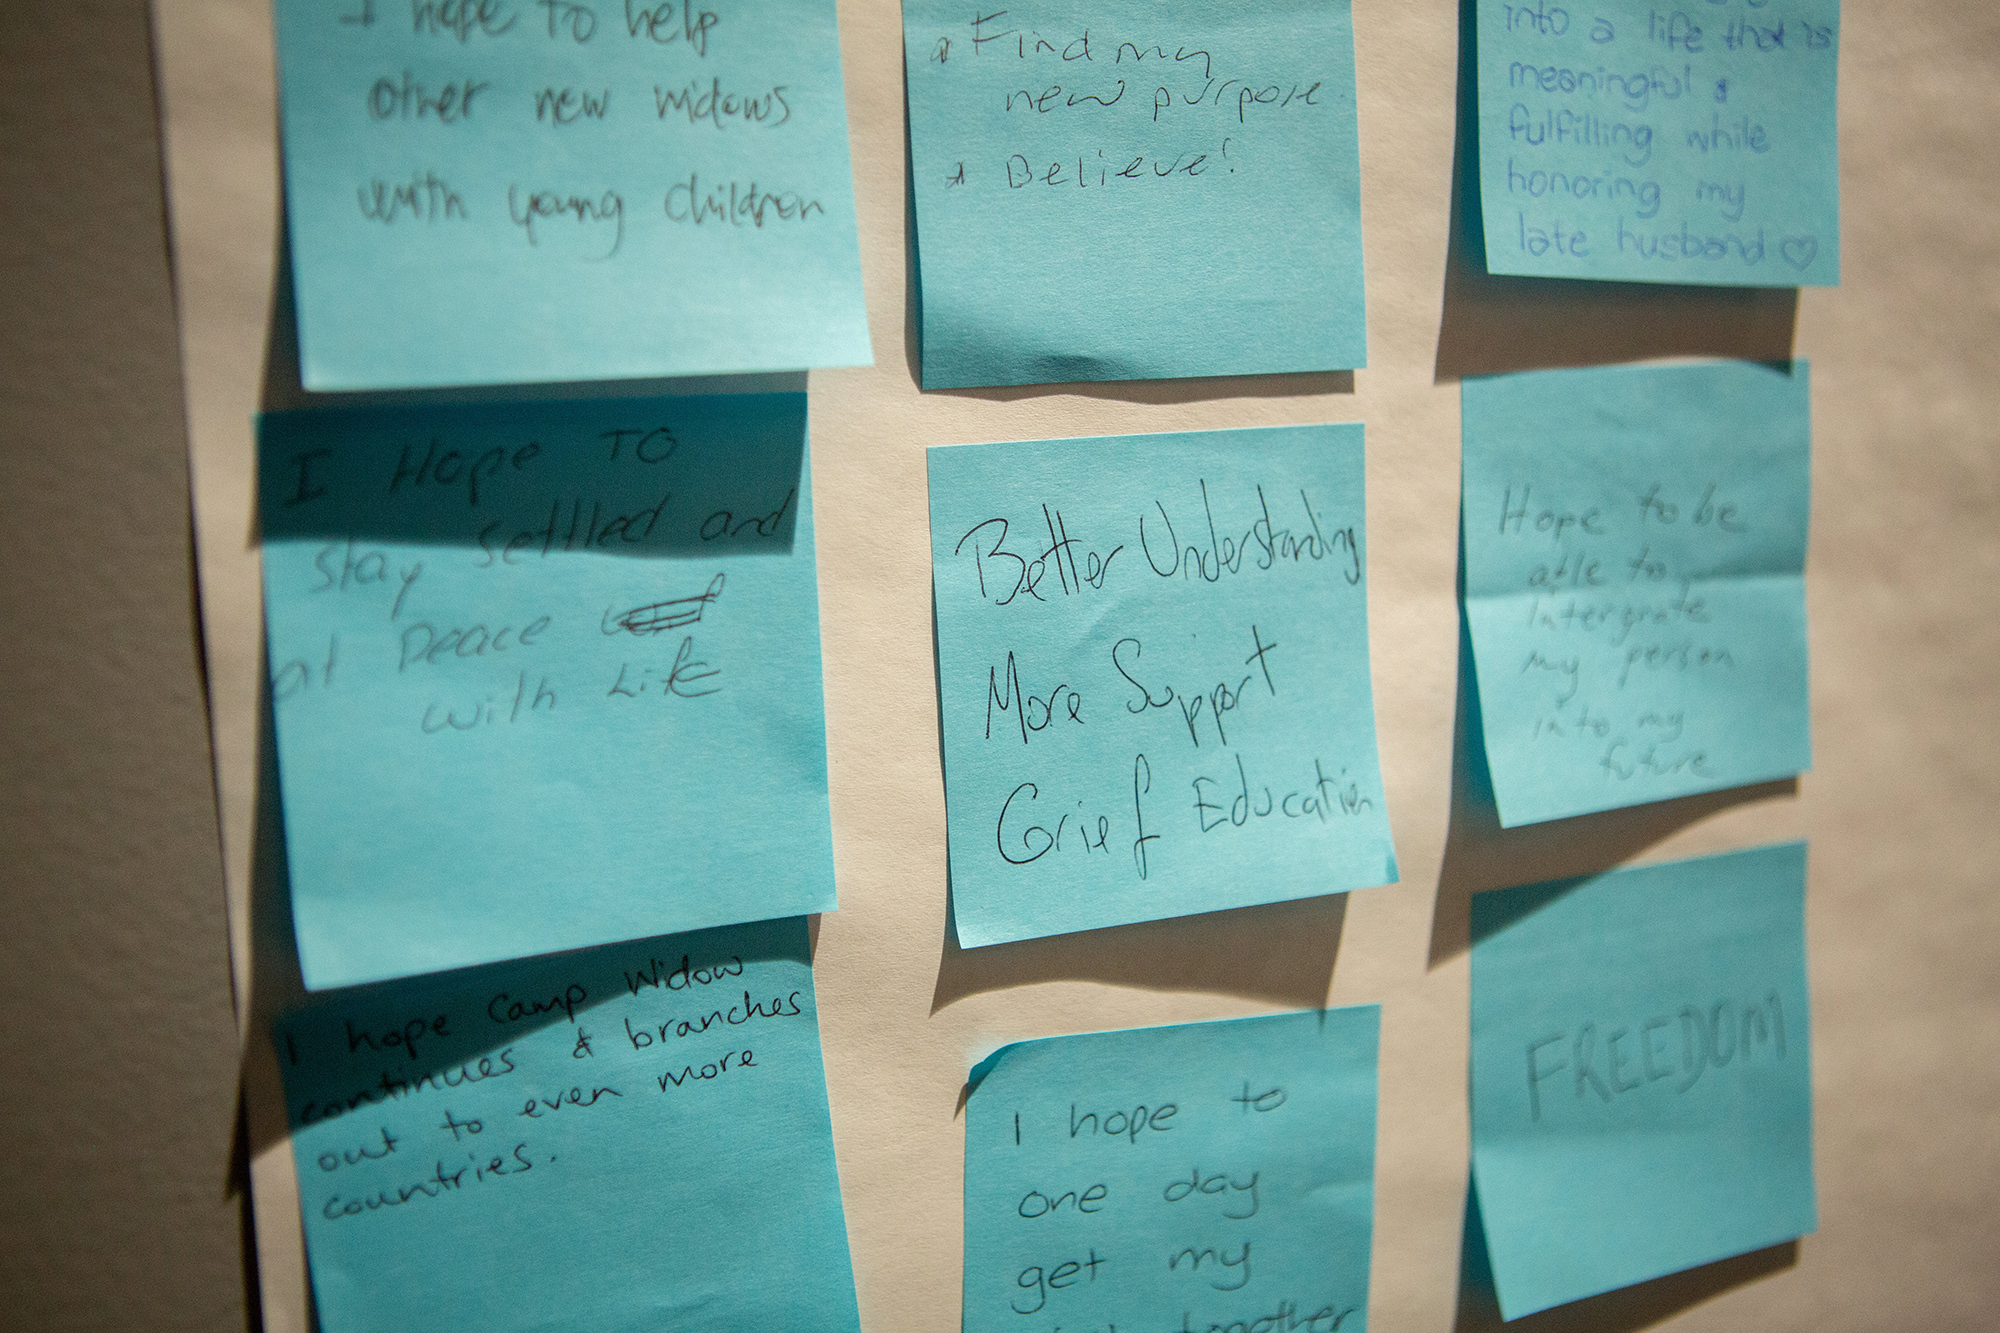 I hope to help
other new widows
with young children
* Find my
new purpose.
* Believe!
into a life that is
meaningful &
fulfilling while
honoring my
late husband ♡
I Hope TO
stay settled and
at peace
with Life
Better Understanding
More Support
Grief Education
Hope to be
able to
intergrate
my person
into my
future
I hope Camp Widow
continues & branches
out to even more
countries.
I hope to
one day
get my
together
FREEDOM